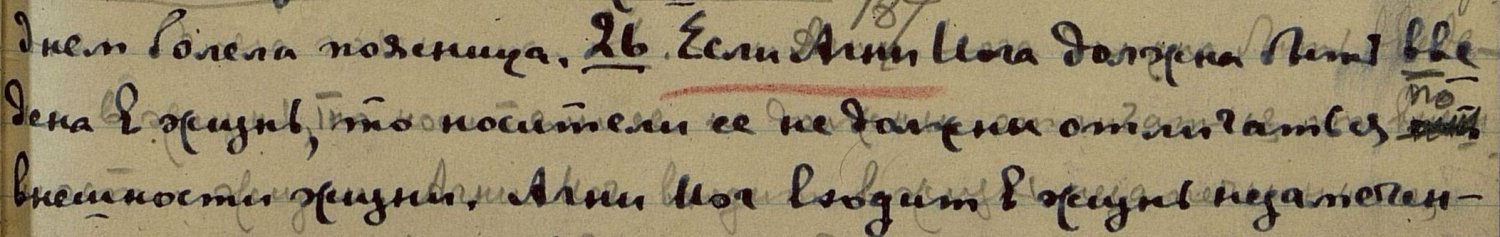 днем болела поясница. 26 Если Агни Йога должна быть вве-
дена в жизнь, то носители ее не должны отличаться по
внешности жизни. Агни Йог входит в жизнь незамечен-